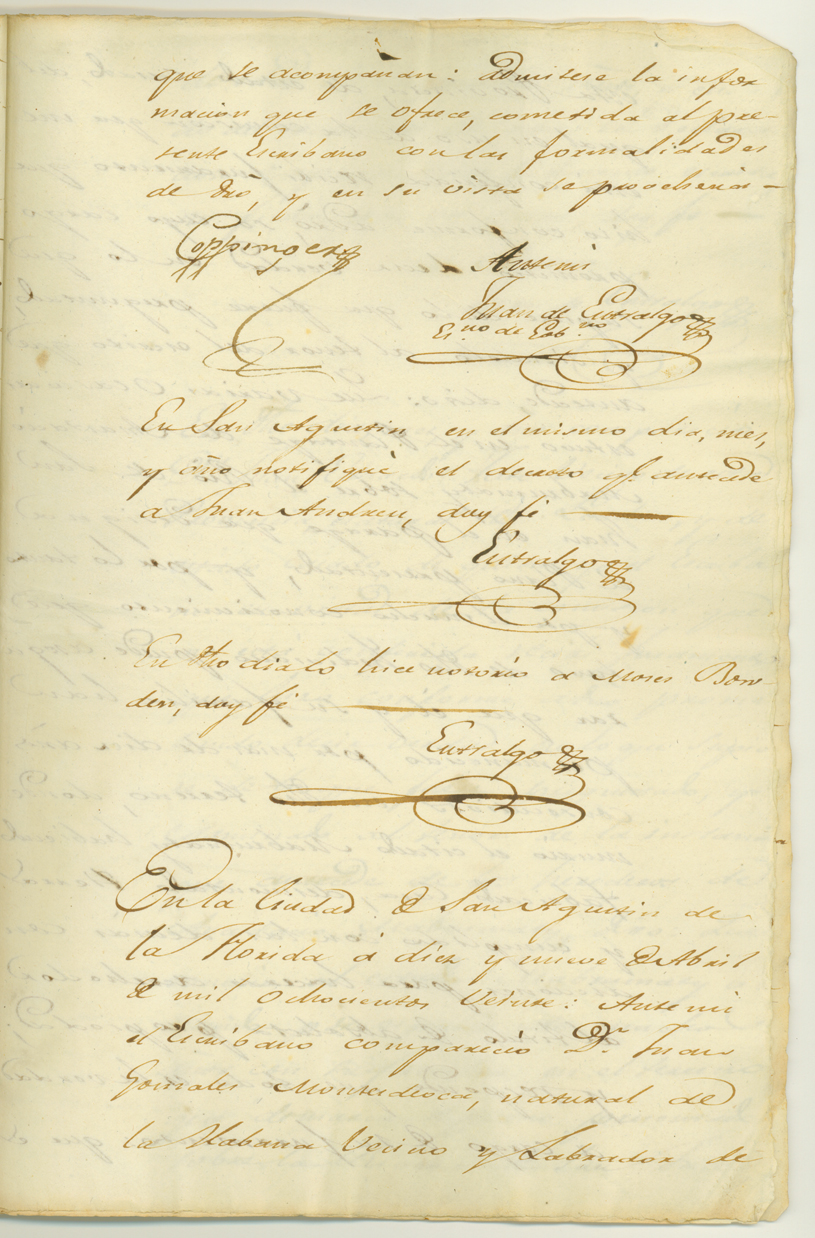 que se acompañan: admitese la infor
macion que se ofrece, cometida al pre-
sente Escribano con las formalidades
de dro, y en su vista se proveherá -
Coppinger
Antemi
Juan de Entralgo
Es.no de Gob.no
En San Agustin en el mismo dia, mes,
y año notifiqué el decreto q.e antecede
a Juan Andreu, doy fé
Entralgo
En dho dia lo hice notorio a Moses Bow-
den, doy fé
Entralgo
En la Ciudad de San Agustin de
la Florida á diez y nueve de Abril
de mil ochocientos veinte: Antemi
el Escribano comparecio D.n Juan
Gonzales Montesdeoca, natural de
la Habana Vecino y Labrador de